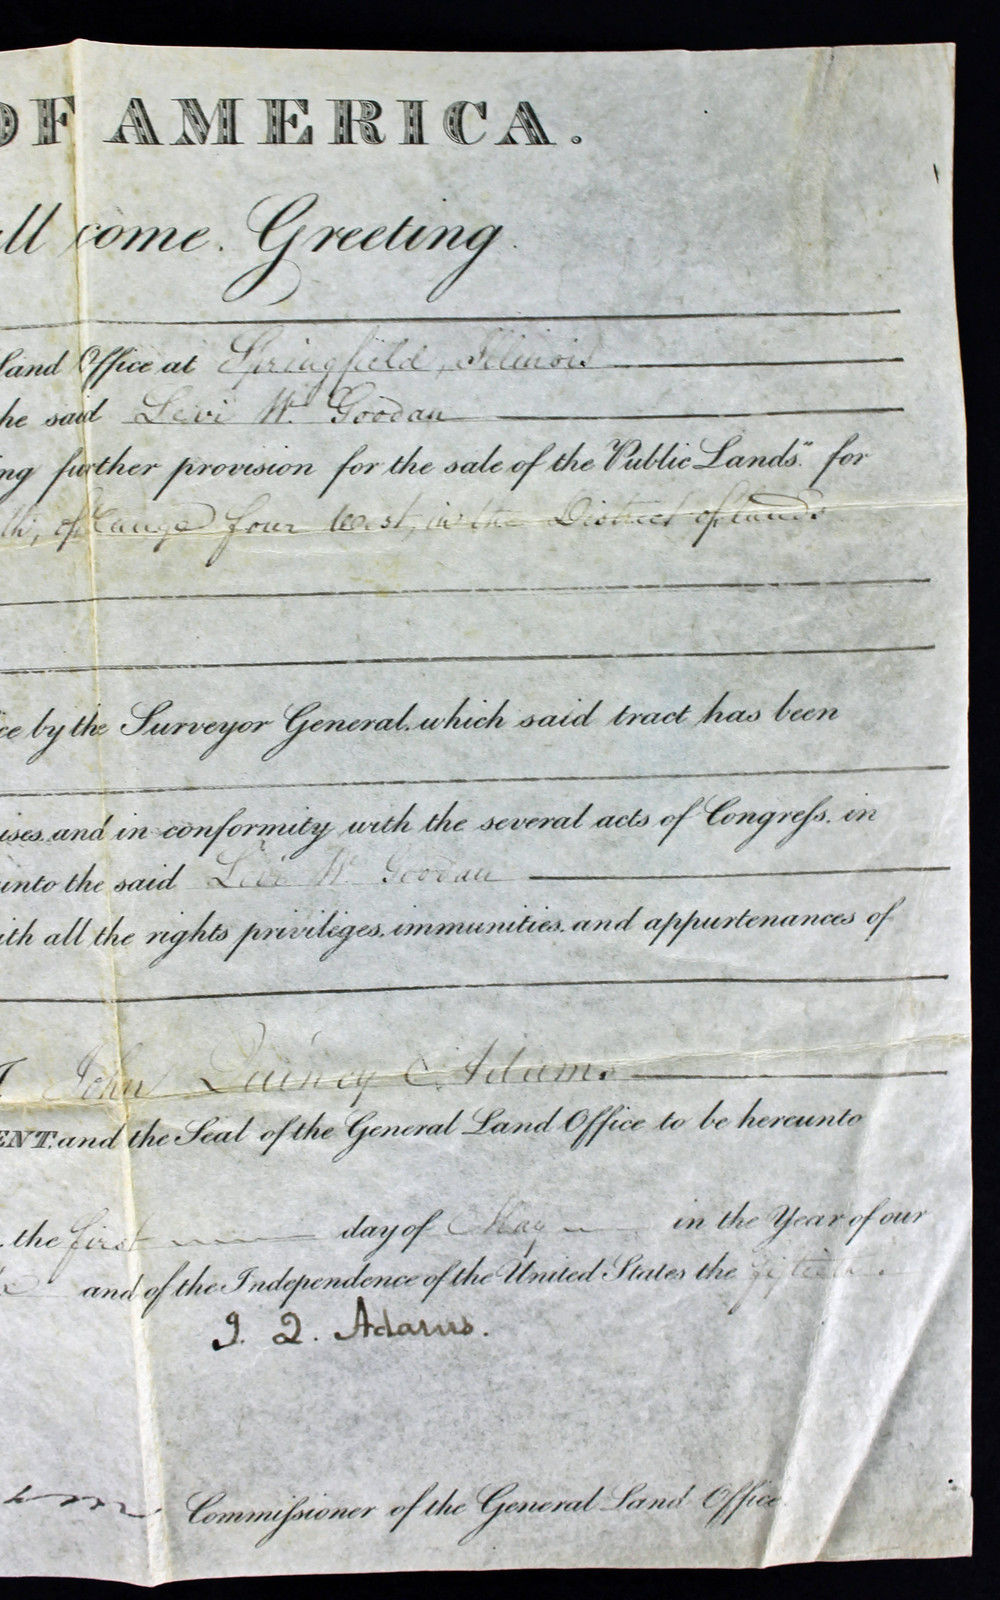 OF AMERICA.
all come. Greeting.
Land Office at Springfield, Illinois
he said Levi W. Goodan
ng further provision for the sale of the Public Lands." for
th, of Range four West, in the District of lands
ce by the Surveyor General, which said tract has been
ises, and in conformity with the several acts of Congreſs, in
unto the said Levi W. Goodan
ith all the rights, privileges, immunities, and appurtenances of
I John Quincy Adams
ENT, and the Seal of the General Land Office to be hereunto
the first day of May in the Year of our
and of the Independence of the United States the fiftieth.
J. Q. Adams.
Commiſsioner of the General Land Office.